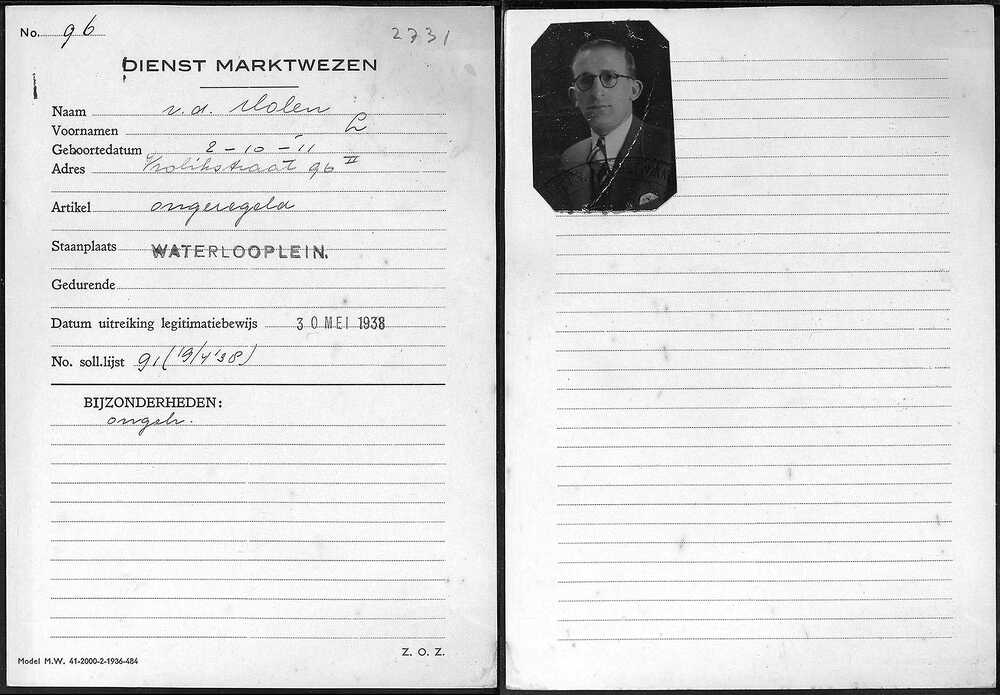 No. 96
2731
DIENST MARKTWEZEN
Naam v.d. Molen
Voornamen L
Geboortedatum 2-10-'11
Adres Vrolikstraat 96 II
Artikel ongeregeld
Staanplaats WATERLOOPLEIN.
Gedurende
Datum uitreiking legitimatiebewijs 30 MEI 1938
No. soll.lijst 91 (19/4 '38)
BIJZONDERHEDEN:
ongeh.
Z. O. Z.
Model M.W. 41-2000-2-1936-484